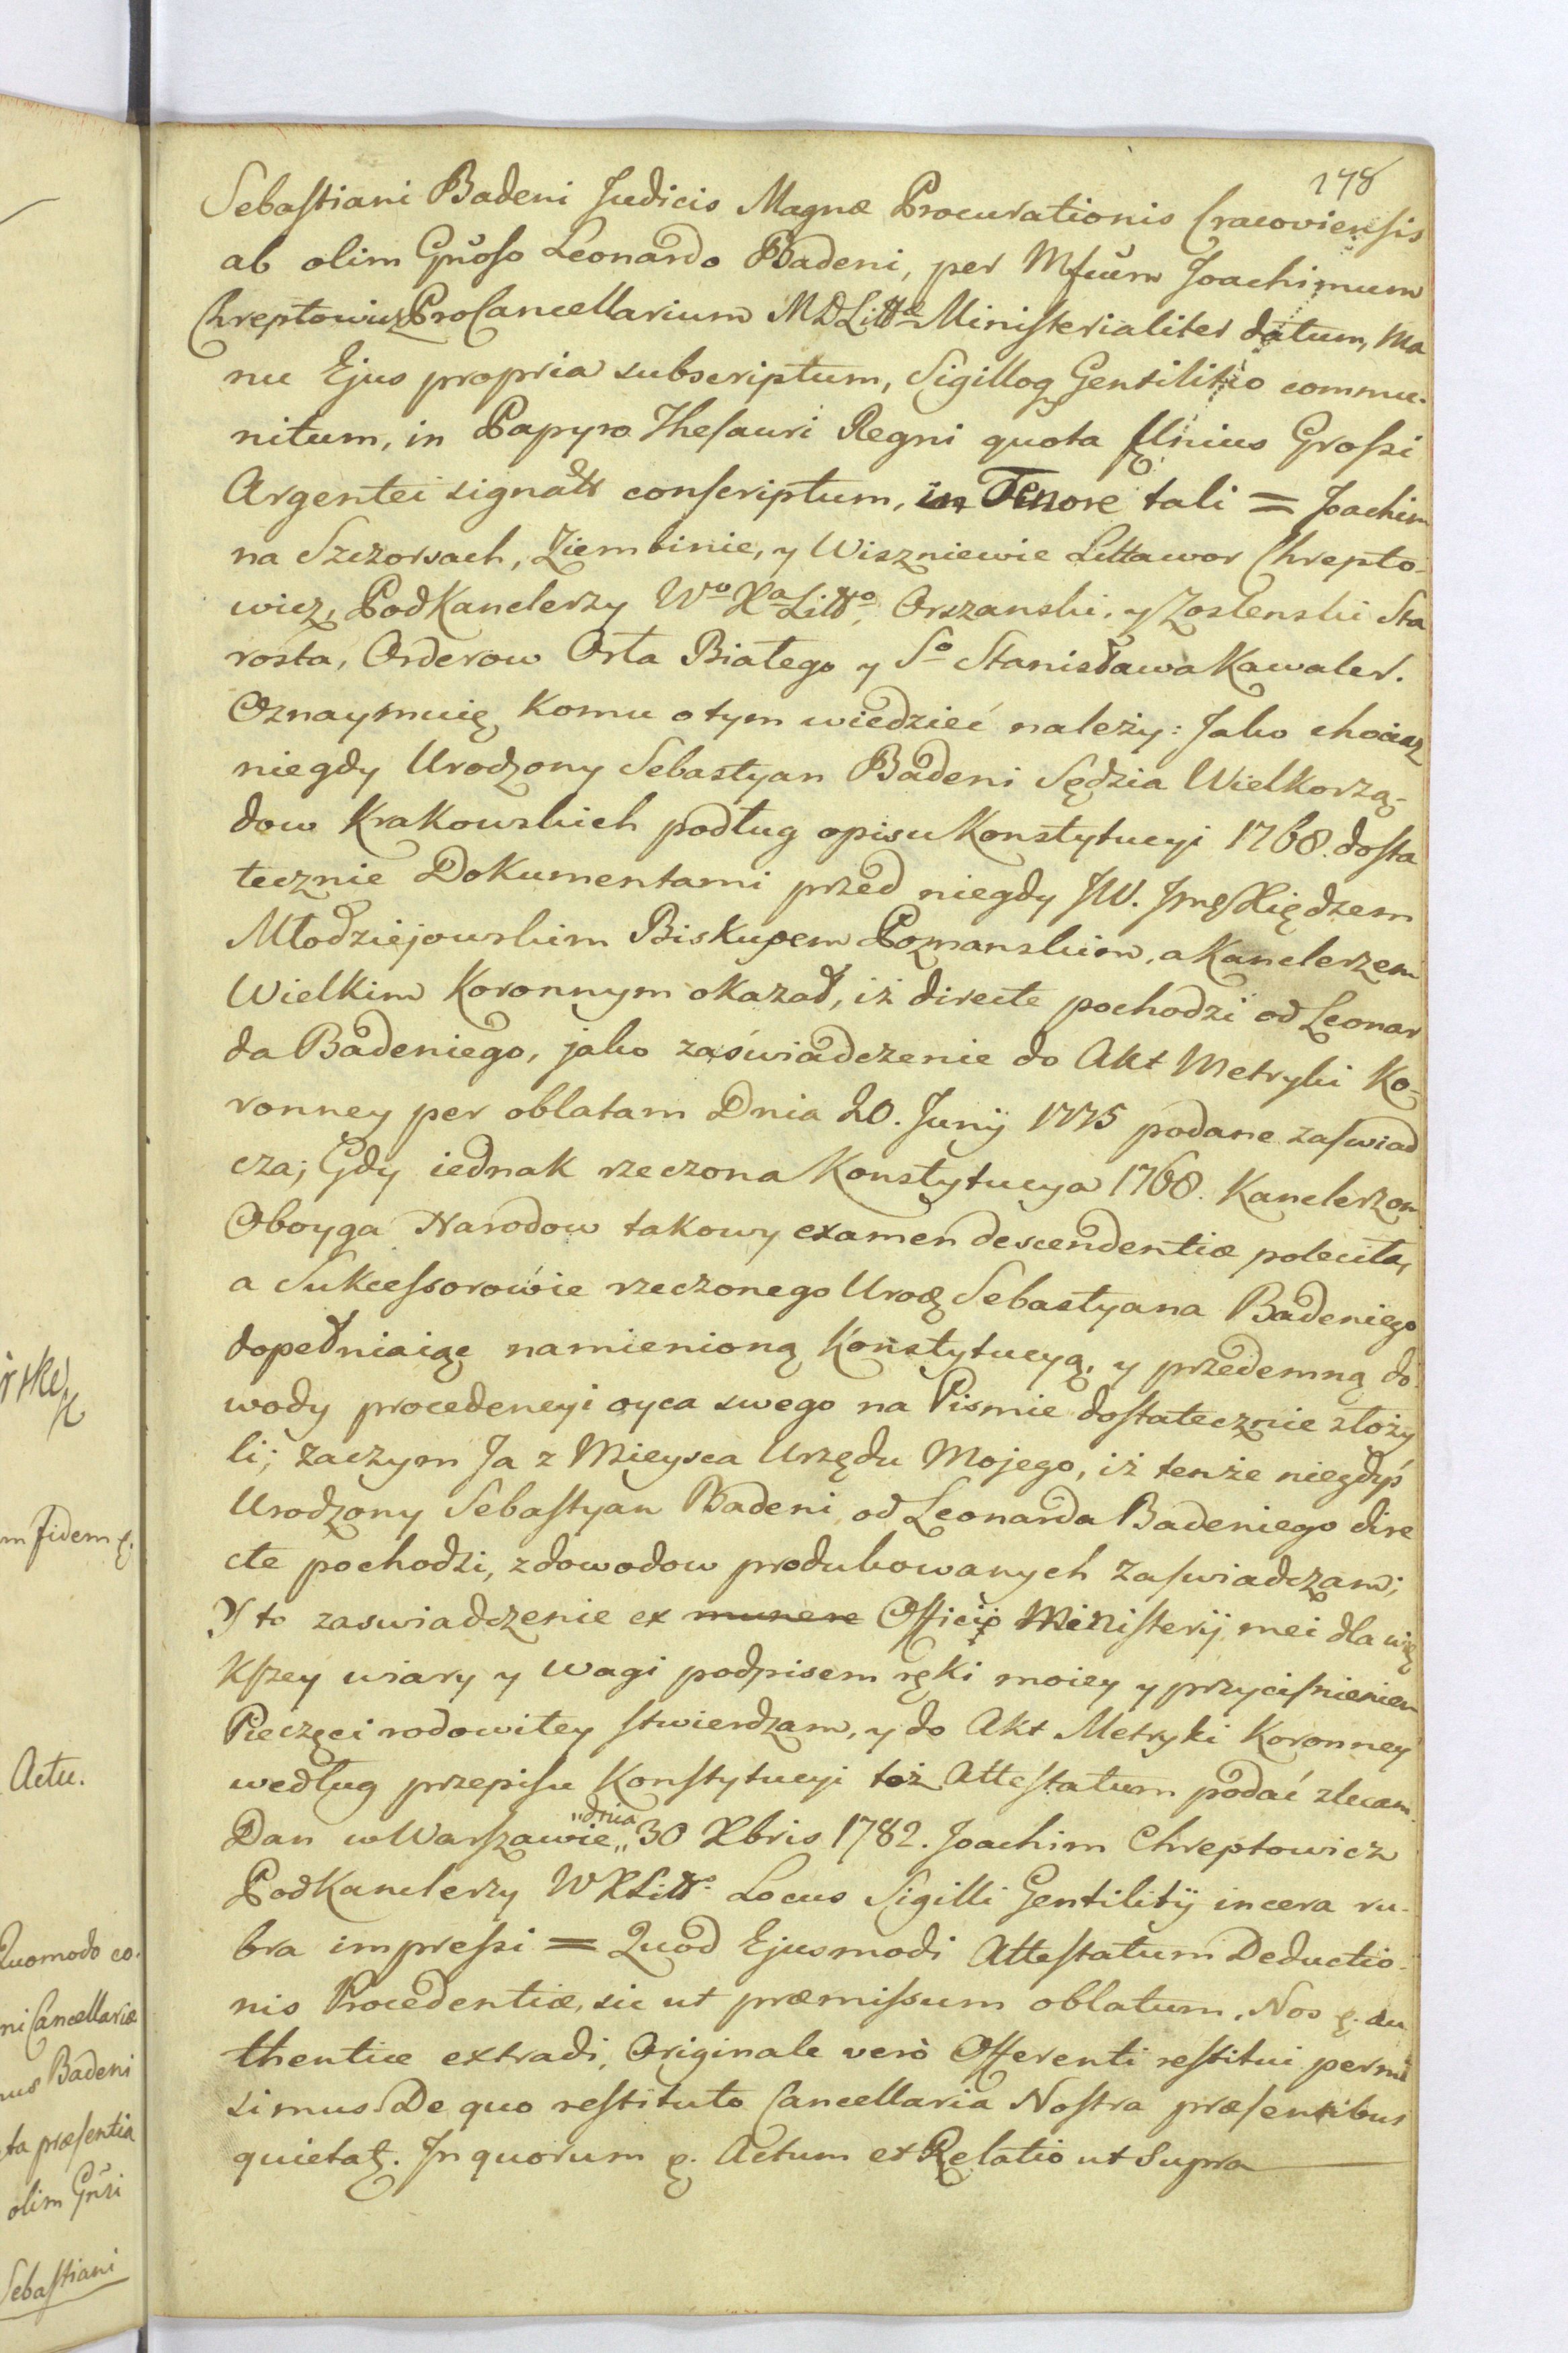 178
Sebastiani Badeni Judicis Magnæ Procurationis Cracoviensis
ab olim Gnoso Leonardo Badeni, per Mfcum Joachimum
Chreptowicz ProCancellarium MDLitt Ministerialiter datum, Ma
nu Ejus propria subscriptum, Sigilloq Gentilitio commu-
nitum, in Papyro Thesauri Regni quota Unius Grossi
Argentei signatt conscriptum, in Tenore tali = Joachim
na Szczorsach, Ziembinie, y Wiszniewie Littawor Chrepto-
wicz, PodKanclerzy Wo Xa Litto, Orszanski, y Zoslenski Sta
rosta, Orderow Orła Białego y So Stanisława Kawaler.
Oznaymuię Komu o tym wiedzieć należy: Jako chociaz
niegdy Urodzony Sebastyan Badeni Sędzia Wielkorzą-
dow Krakowskich podług opisu Konstytucyi 1768. dosta
tecznie Dokumentami przed niegdy JW. Jmę Xiędzem
Młodziejowskim Biskupem Poznanskim, a Kanclerzem
Wielkim Koronnym okazał, iż directe pochodzi od Leonar
da Badeniego, jako zaświadczenie do Akt Metryki Ko-
ronney per oblatam Dnia 20. Junij 1775 podane zaswiad
cza; Gdy iednak rzeczona Konstytucya 1768. Kanclerzom
Oboyga Narodow takowy examen descendentiæ poleciła,
a Sukcessorowie rzeczonego Urodz Sebastyana Badeniego
dopełniaiąc namienioną Konstytucyą, y przedemną do
wody procedencyi oyca swego na Pismie dostatecznie złoży
li; zaczym Ja z Mieysca Urzędu Mojego, iż tenże niegdyś
Urodzony Sebastyan Badeni od Leonarda Badeniego dire
cte pochodzi, z dowodow produkowanych zaswiadczam;
Y to zaswiadczenie ex munere Officij Ministerij mei dla wię
kszey wiary y wagi podpisem ręki moiey y przycisnieniem
Pieczęci rodowitey stwierdzam, y do Akt Metryki Koronney
według przepisu Konstytucyi toż Attestatum podać zlecam.
Dan w Warszawie „dnia„ 30 Xbris 1782. Joachim Chreptowicz
PodKanclerzy WXLitto. Locus Sigilli Gentilitij in cera ru-
bra impressi = Quod Ejusmodi Attestatum Deductio-
nis Procedentiæ, sic ut præmissum oblatum, Nos &. au
thentice extradi, Originale verò Offerenti restitui permi
simus. De quo restituto Cancellaria Nostra præsentibus
quietat. In quorum &. Actum et Relatio ut Supra
m fidem &.
Actu.
Quomodo co.
ni Cancellariæ
nus Badeni
ta præsentia
olim Gnsi
Sebastiani